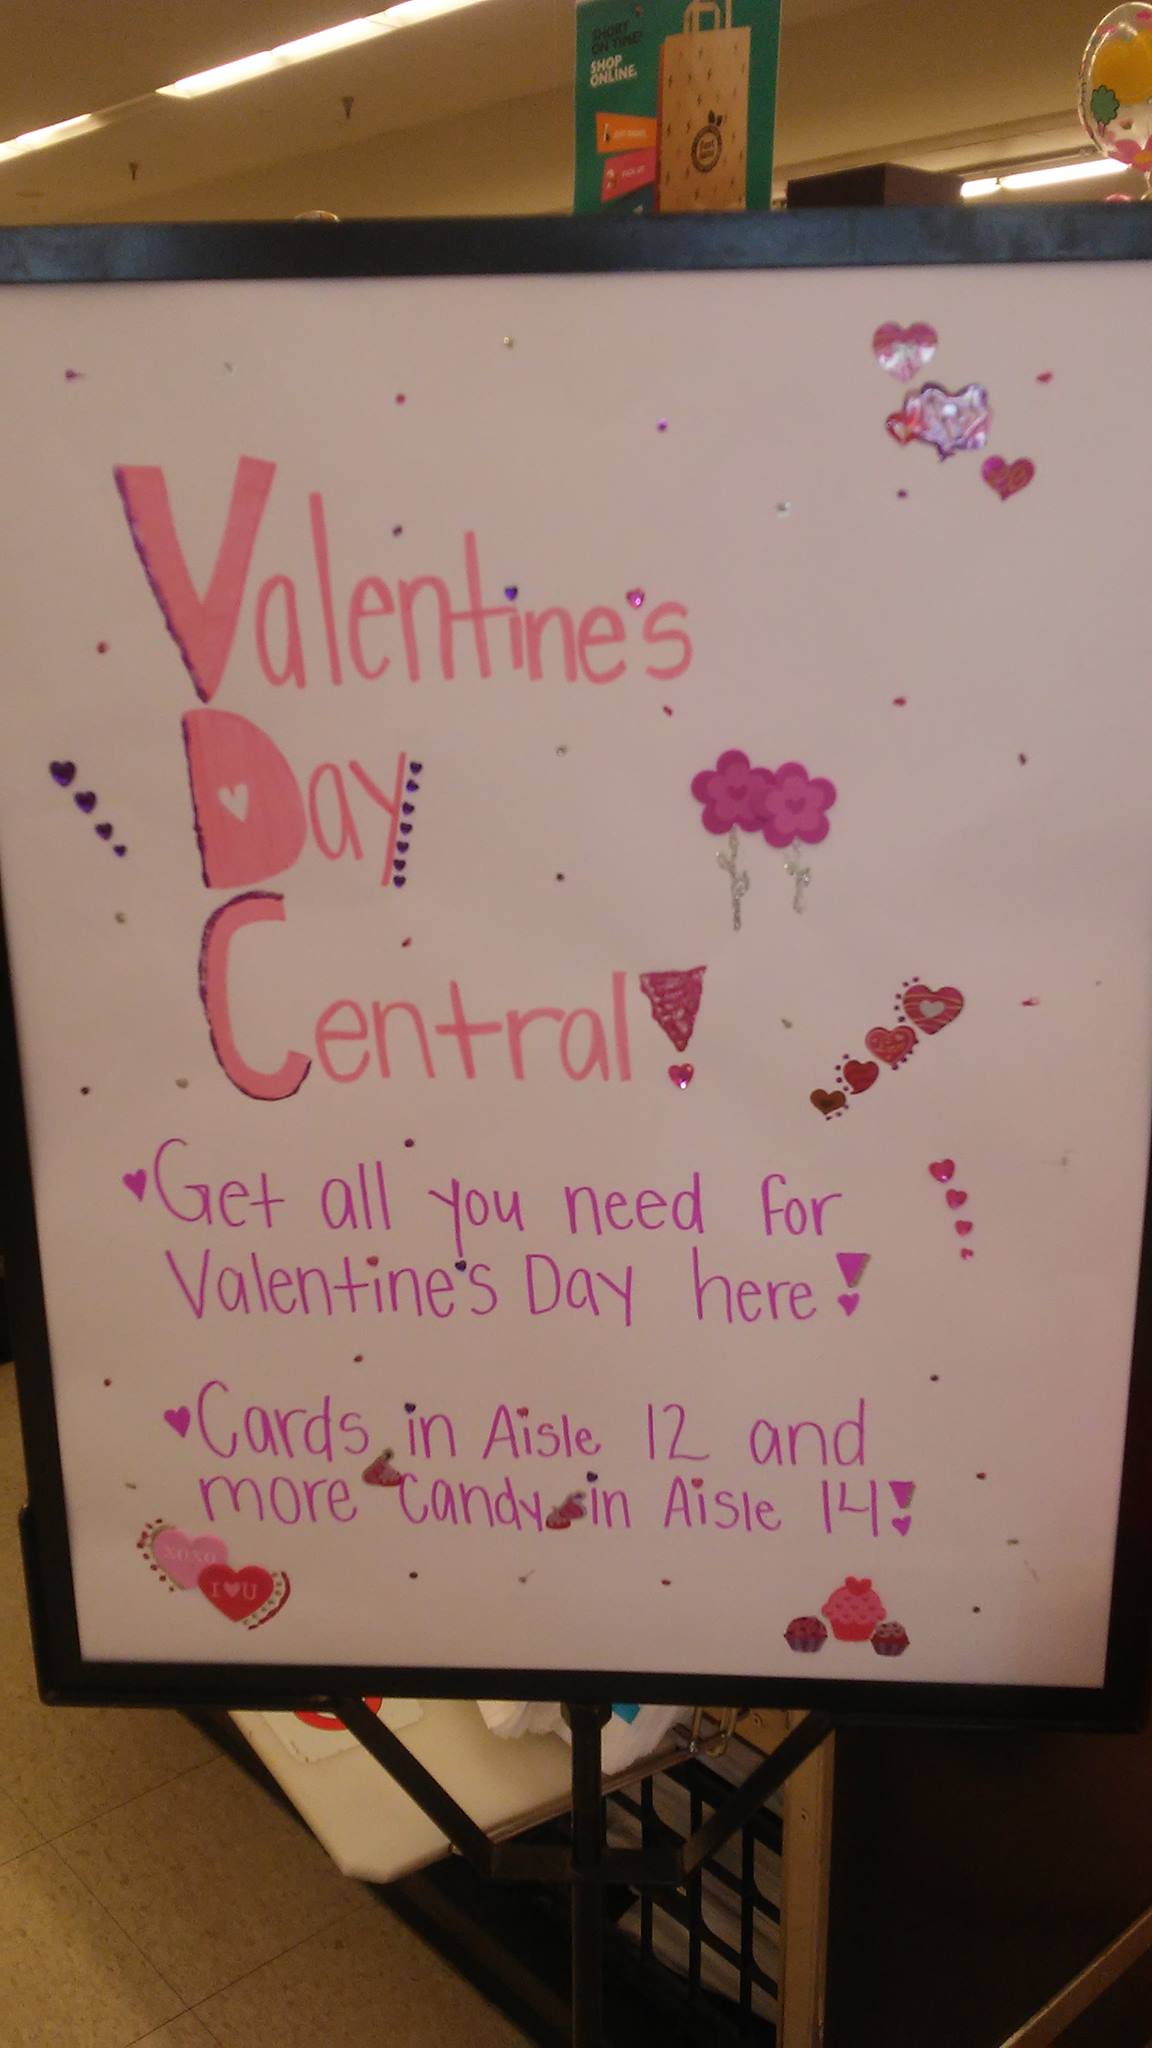 SHORT
ON TIME?
SHOP
ONLINE.
Valentine's
Day
Central!
Get all you need for
Valentine's Day here!
Cards in Aisle 12 and
more candy in Aisle 14!
XOXO
I ♥ U